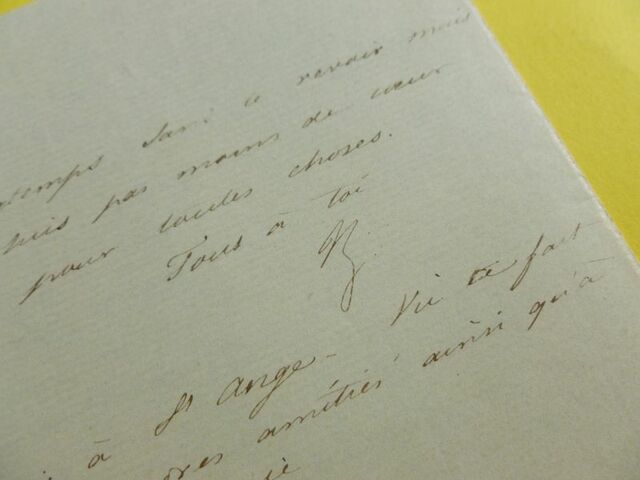 temps sans te revoir mais
suis pas moins de cœur
pour toutes choses.
Tous à toi
à St Ange – Vié te fait
amitiés ainsi qu'à